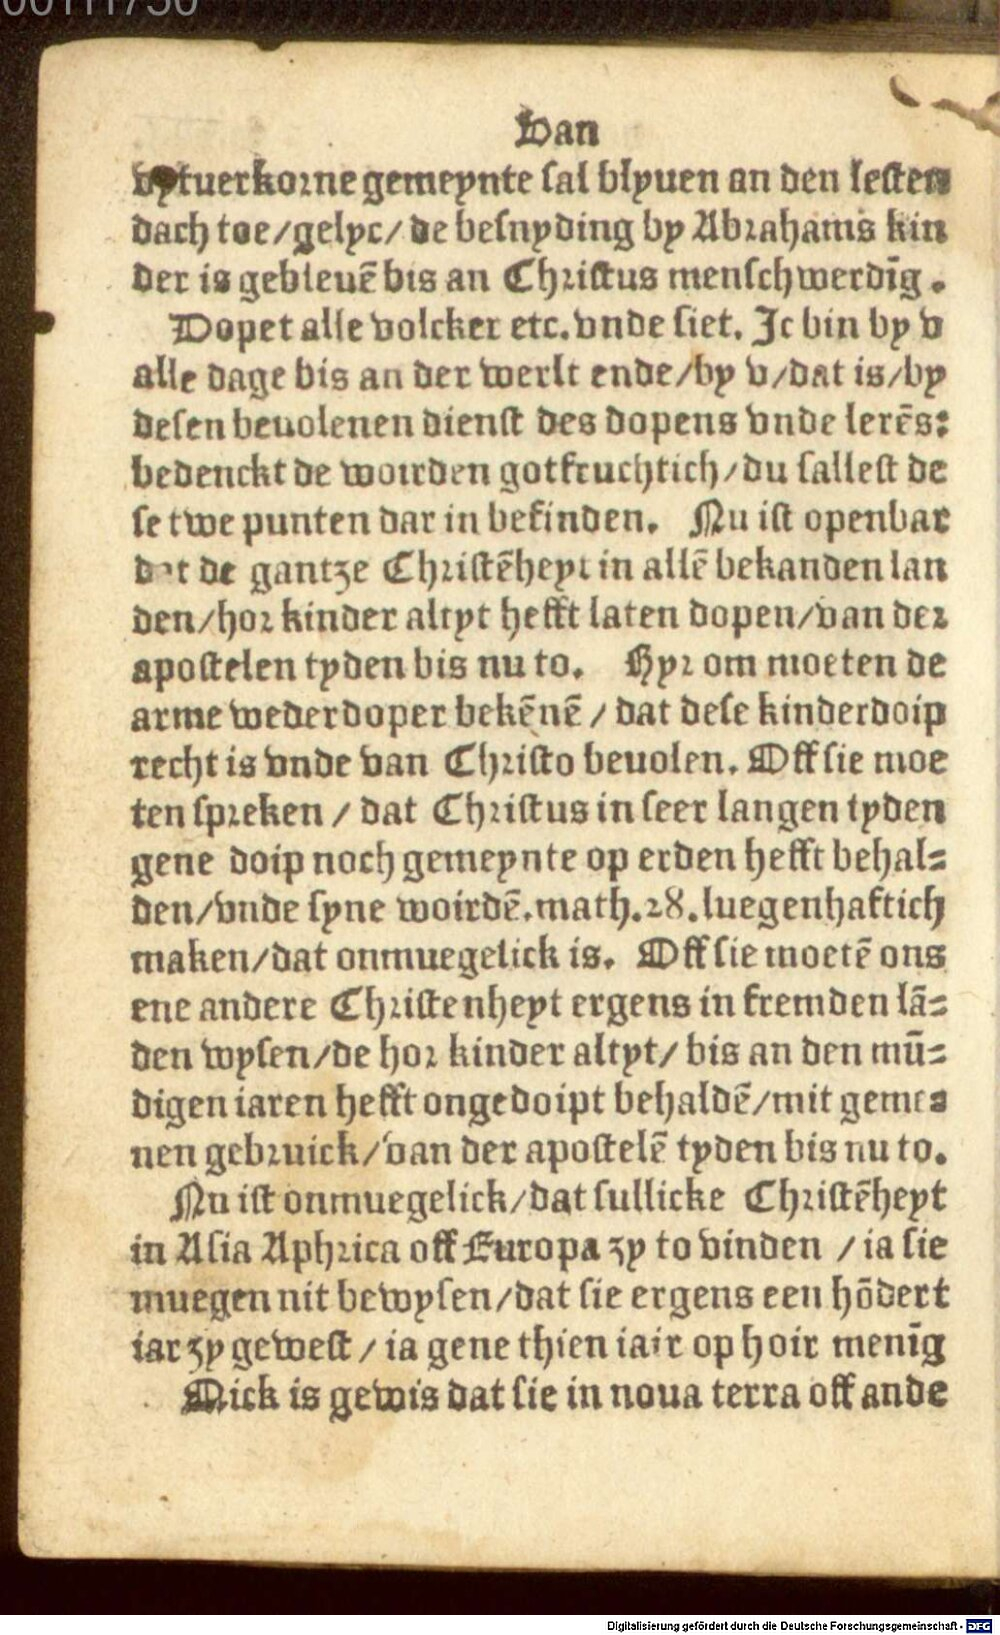 00111736
Van
vytuerkorne gemeynte sal blyuen an den lesten
dach toe/gelyc/de besnyding by Abrahams kin
der is gebleuē bis an Christus menschwerdīg.
Dopet alle volcker etc. vnde siet. Jc bin by v
alle dage bis an der werlt ende/by v/dat is/by
desen beuolenen dienst des dopens vnde lerēs:
bedenckt de woirden gotfruchtich/du sallest de
se twe punten dar in befinden. Nu ist openbar
dat de gantze Christēheyt in allē bekanden lan
den/hor kinder altyt hefft laten dopen/van der
apostelen tyden bis nu to. Hyr om moeten de
arme wederdoper bekēnē/dat dese kinderdoip
recht is vnde van Christo beuolen. Off sie moe
ten spreken/dat Christus in seer langen tyden
gene doip noch gemeynte op erden hefft behal=
den/vnde syne woirdē.math.28.luegenhaftich
maken/dat onmuegelick is. Off sie moetē ons
ene andere Christenheyt ergens in fremden lā=
den wysen/de hor kinder altyt/bis an den mū=
digen iaren hefft ongedoipt behaldē/mit geme=
nen gebruick/van der apostelē tyden bis nu to.
Nu ist onmuegelick/dat sullicke Christēheyt
in Asia Aphrica off Europa zy to vinden/ia sie
muegen nit bewysen/dat sie ergens een hōdert
iar zy gewest/ia gene thien iair op hoir menīg
Mick is gewis dat sie in noua terra off ande
Digitalisierung gefördert durch die Deutsche Forschungsgemeinschaft - DFG